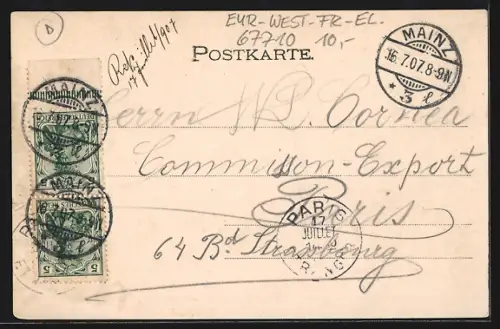 D
EUR-WEST-FR-EL.
67710 10,-
POSTKARTE.
MAINZ
16.7.07.8-9N.
* 3 l
MAINZ
MAINZ
5 5
5 5
Herrn W. Cornea
Commission-Export
Paris
64 Bd Strasbourg
PARIS
17
JUILLET